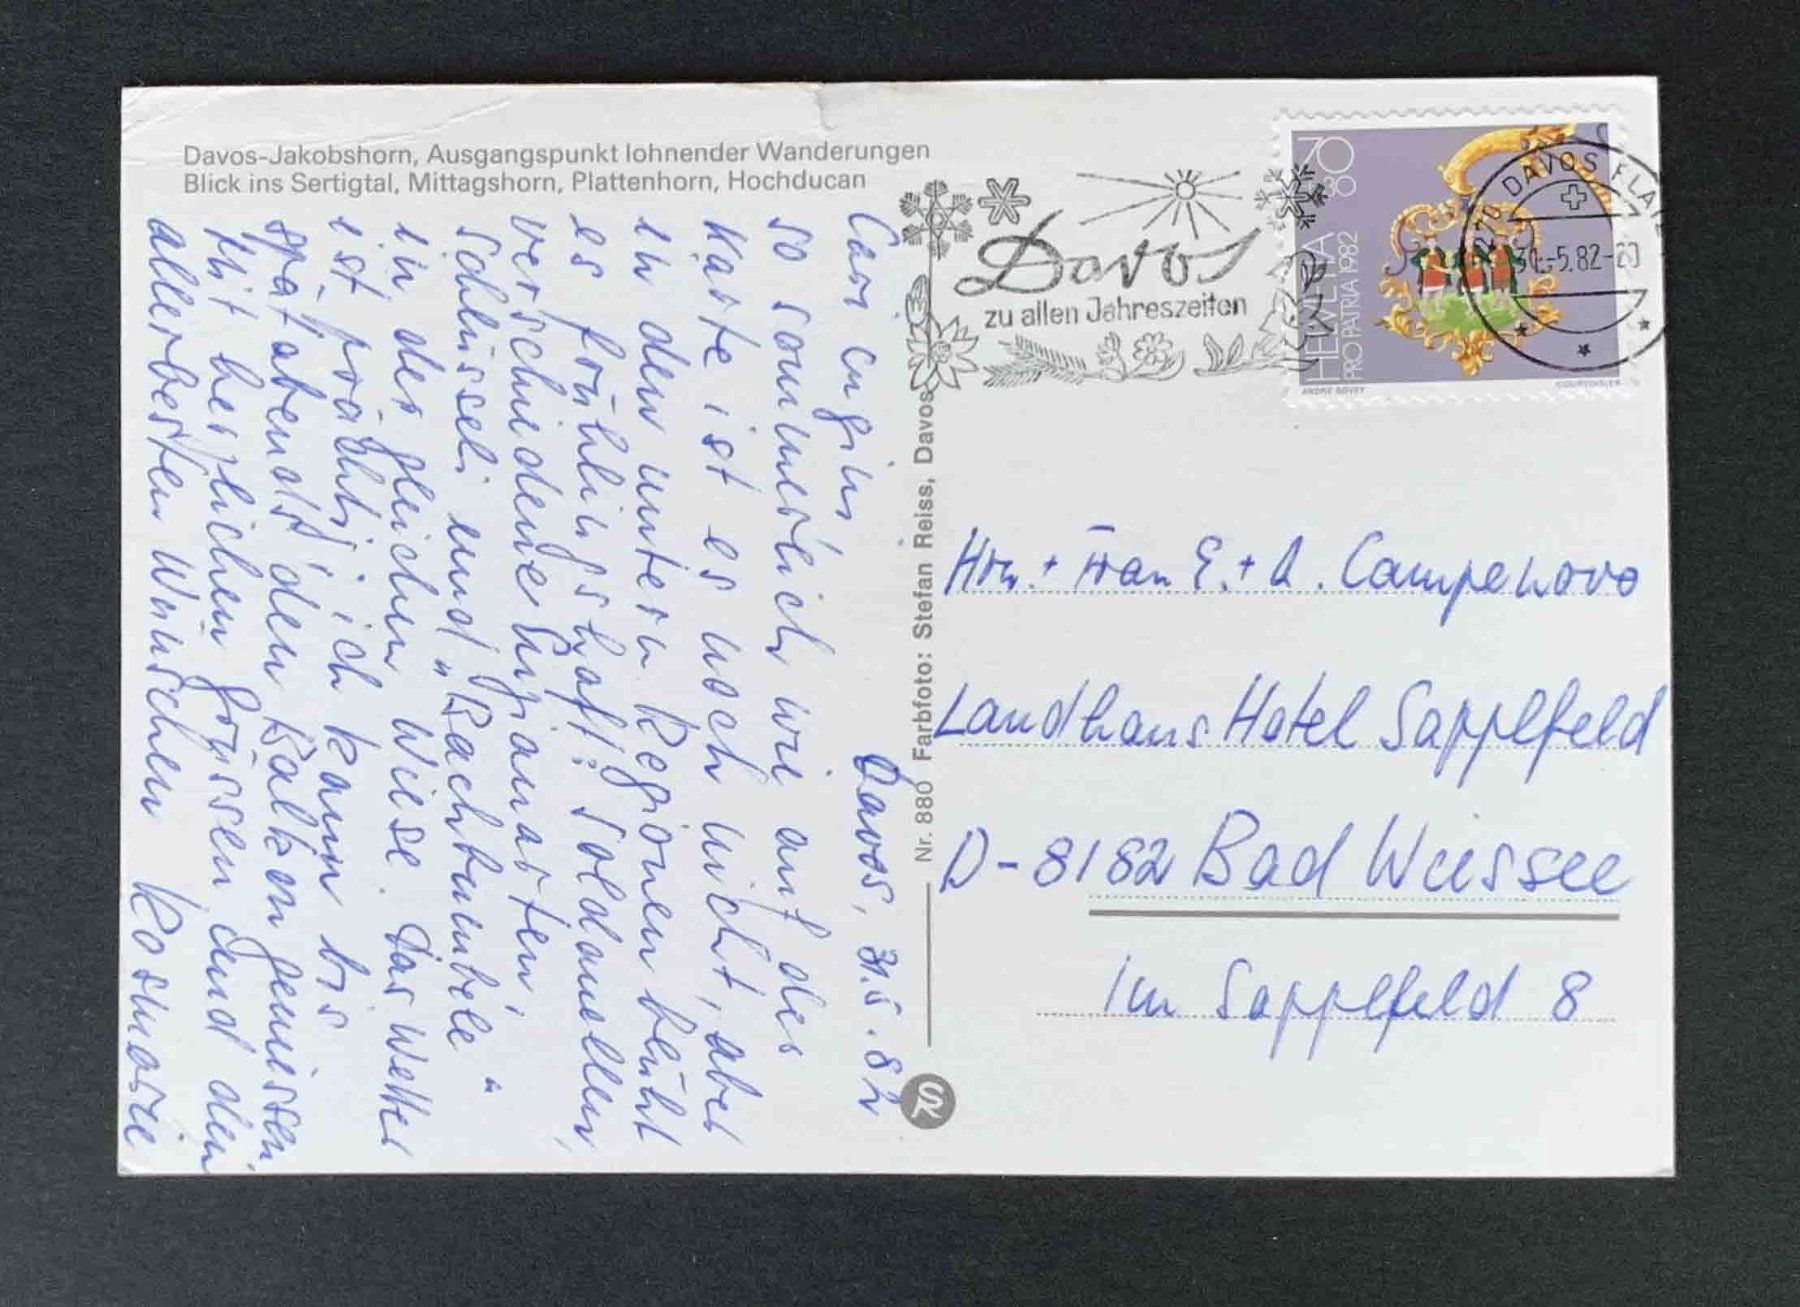 Davos-Jakobshorn, Ausgangspunkt lohnender Wanderungen
Blick ins Sertigtal, Mittagshorn, Plattenhorn, Hochducan
Davos
zu allen Jahreszeiten
70
+30
HELVETIA
PRO PATRIA 1982
ANDRÉ BOVEY
COURVOISIER
DAVOS PLATZ
31.-5.82-20
Cari cugini
Davos, 31.5.82
so sommerlich wie auf der
Karte ist es noch nicht, aber
in den untern Regionen blüht
es frühlingshaft: Soldanellen,
verschiedene Enzianarten,
Schlüsseli und "Bachbumbele"
in der gleichen Wiese. Das Wetter
ist prächtig, ich kann bis
spätabends den Balkon geniessen
Mit herzlichen Grüssen und den
allerbesten Wünschen Rosmarie
Nr. 880 Farbfoto: Stefan Reiss, Davos
SR
Hrn. + Frau E. + A. Campenovo
Landhaus Hotel Sapplfeld
D-8182 Bad Wiessee
im Sapplfeld 8